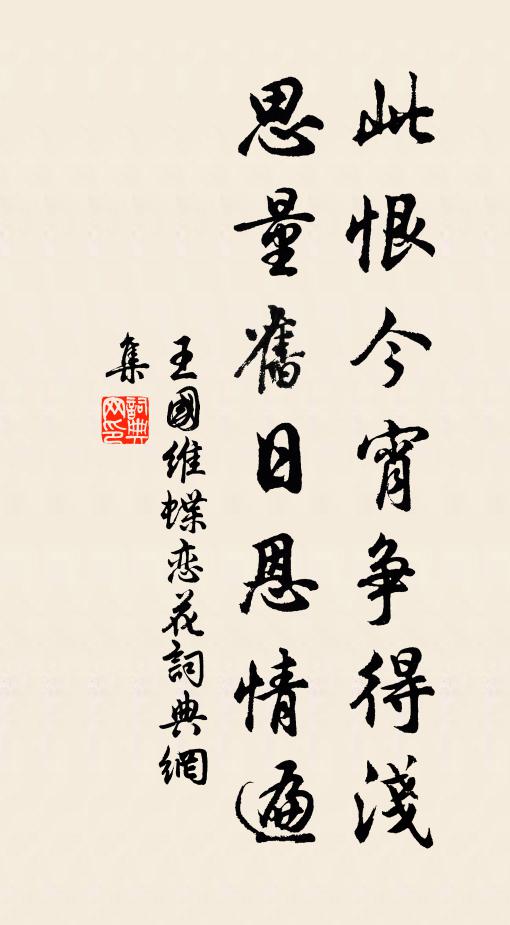 此恨今宵争得淺
思量舊日恩情遍
王國維蝶恋花詞典網
集
詞典網印